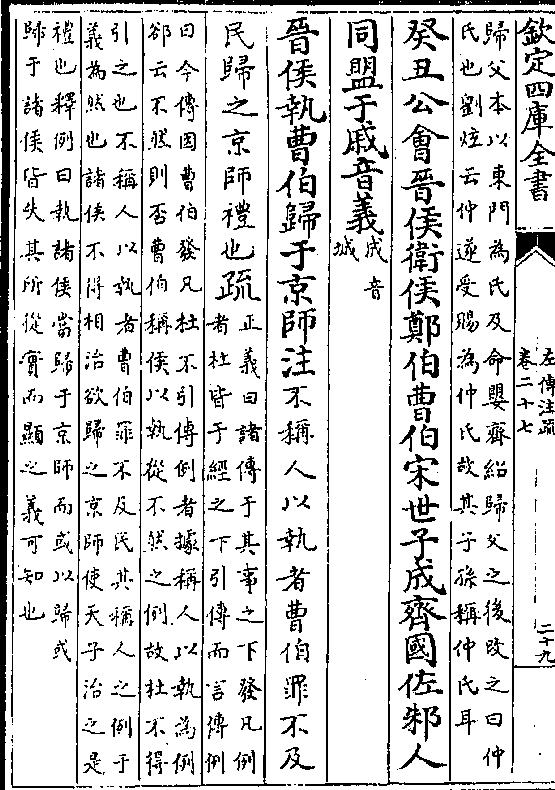 欽定四庫全書
左傳注疏
卷二十七
二十九
歸父本以東門為氏及命嬰齊紹歸父之後改之曰仲
氏也劉炫云仲遂受賜為仲氏故其子孫稱仲氏耳
癸丑公會晉侯衛侯鄭伯曹伯宋世子成齊國佐邾人
同盟于戚音義
成音
城
晉侯執曹伯歸于京師注不稱人以執者曹伯罪不及
民歸之京師禮也疏
正義曰諸傳于其事之下發凡例
者杜皆于經之下引傳而言傳例
曰今傳因曹伯發凡杜不引傳例者據稱人以執為例
郤云不然則否曹伯稱侯以執從不然之例故杜不得
引之也不稱人以執者曹伯罪不及民其稱人之例于
義為然也諸侯不得相治欲歸之京師使天子治之是
禮也釋例曰執諸侯當歸于京師而或以歸或
歸于諸侯皆失其所從實而顯之義可知也